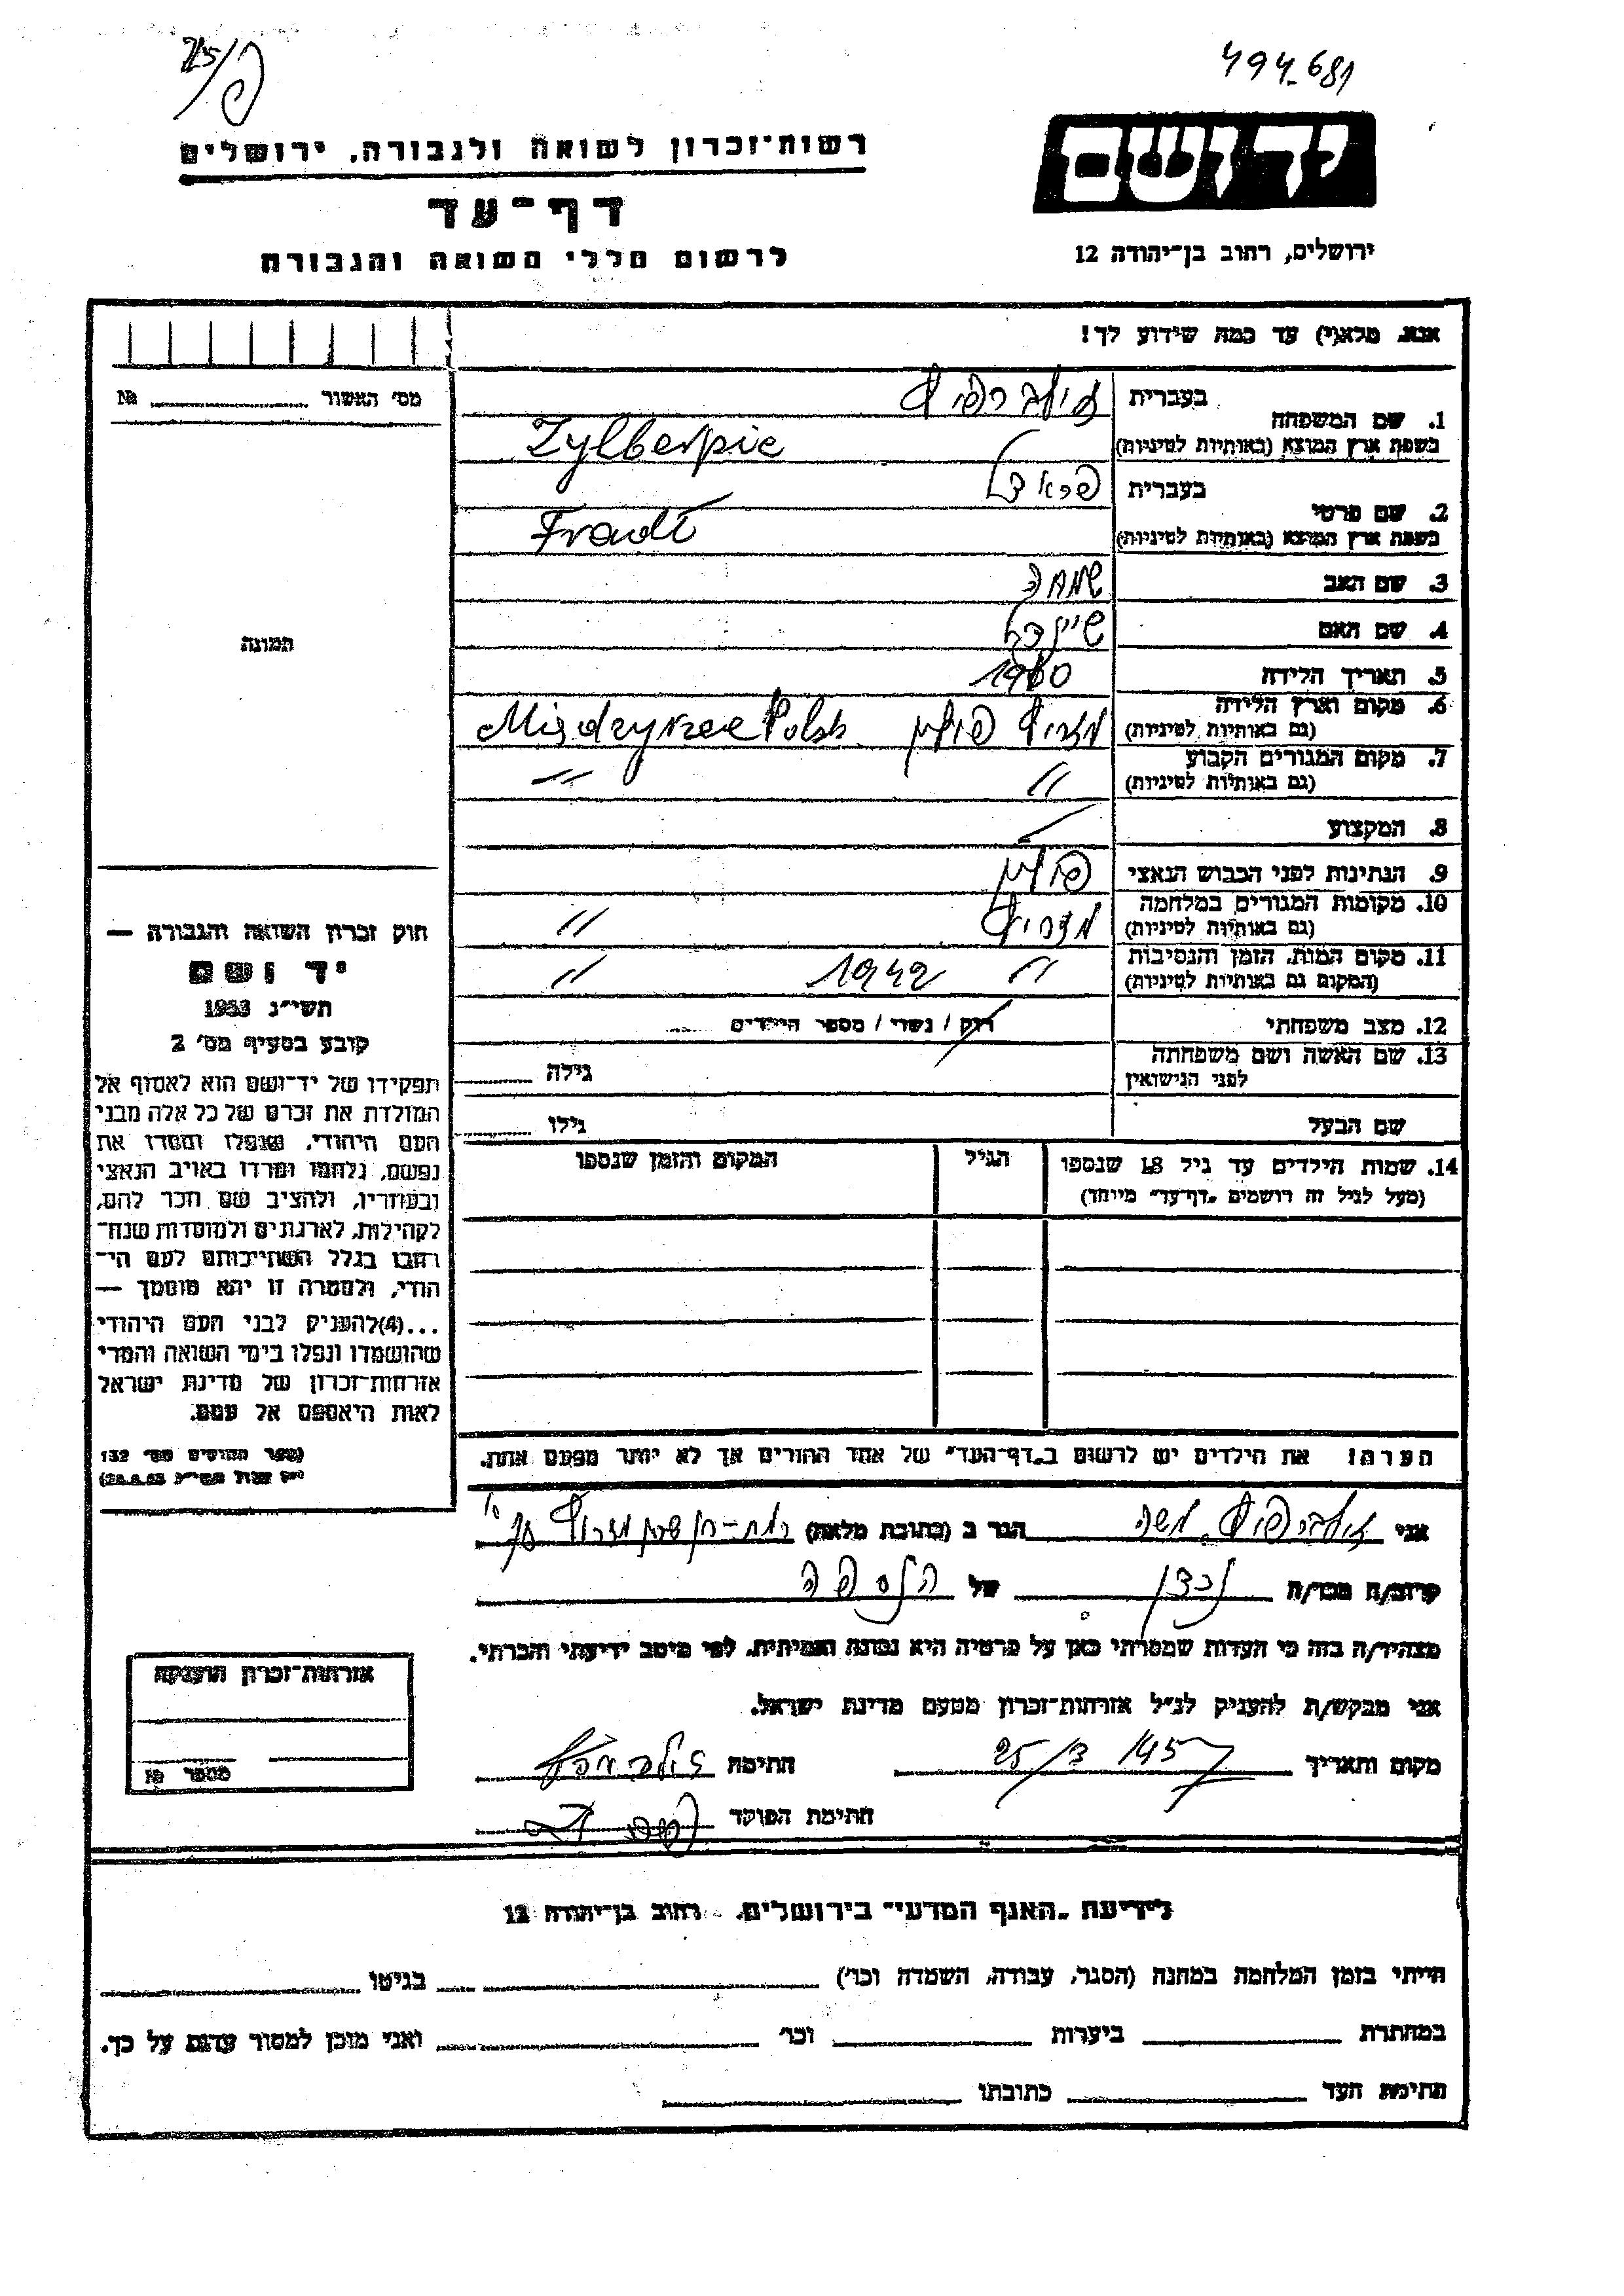 494681
רשות־זכרון לשואה ולגבורה, ירושלים
יד ושם
דף־עד
לרשום חללי השואה והגבורה
ירושלים, רחוב בן־יהודה 12
אנא, מלא(י) עד כמה שידוע לך!
מס׳ האשור № 
1. שם המשפחה
בעברית
בשפת ארץ המוצא (באותיות לטיניות)
Zylberpic
2. שם פרטי
בעברית פראדל
בשפת ארץ המוצא (באותיות לטיניות)
Fradl
3. שם האב שמחה
4. שם האם שיינדל
5. תאריך הלידה
6. מקום וארץ הלידה
(גם באותיות לטיניות)
פולין
7. מקום המגורים הקבוע
(גם באותיות לטיניות)
" "
8. המקצוע
9. הנתינות לפני הכבוש הנאצי פולין
10. מקומות המגורים במלחמה
(גם באותיות לטיניות)
"
11. מקום המות, הזמן והנסיבות
(המקום גם באותיות לטיניות)
" 1942 "
12. מצב משפחתי רווק / נשוי / מספר הילדים
13. שם האשה ושם משפחתה
לפני הנישואין
גילה
שם הבעל גילו
14. שמות הילדים עד גיל 18 שנספו
(מעל לגיל זה רושמים „דף־עד” מיוחד)
הגיל
המקום והזמן שנספו
תמונה
חוק זכרון השואה והגבורה —
יד ושם
תשי״ג 1953
קובע בסעיף מס׳ 2
תפקידו של יד־ושם הוא לאסוף אל
המולדת את זכרם של כל אלה מבני
העם היהודי, שנפלו ומסרו את
נפשם, נלחמו ומרדו באויב הנאצי
ובעוזריו, ולהציב שם וזכר להם,
לקהילות, לארגונים ולמוסדות שנח־
רבו בגלל השתייכותם לעם הי־
הודי, ולמטרה זו יהא מוסמך —
...(4)להעניק לבני העם היהודי
שהושמדו ונפלו בימי השואה והמרי
אזרחות־זכרון של מדינת ישראל
לאות היאספם אל עמם.
(ספר החוקים מס׳ 132
הערה! את הילדים יש לרשום ב„דף־העד” של אחד ההורים אך לא יותר מפעם אחת.
אני משה הגר ב (כתובת מלאה)
קרוב/ה מכר/ה נכדן של הנספה
מצהיר/ה בזה כי העדות שמסרתי כאן על פרטיה היא נכונה ואמיתית, לפי מיטב ידיעתי והכרתי.
אני מבקש/ת להעניק לנ״ל אזרחות־זכרון מטעם מדינת ישראל.
מקום ותאריך 1957 חתימה
חתימת הפוקד
אזרחות־זכרון הוענקה
מספר №
לידיעת „האגף המדעי” בירושלים, רחוב בן־יהודה 12
הייתי בזמן המלחמה במחנה (הסגר, עבודה, השמדה וכו׳) בגיטו
במחתרת ביערות וכו׳ ואני מוכן למסור עדות על כך.
חתימת העד כתובתו